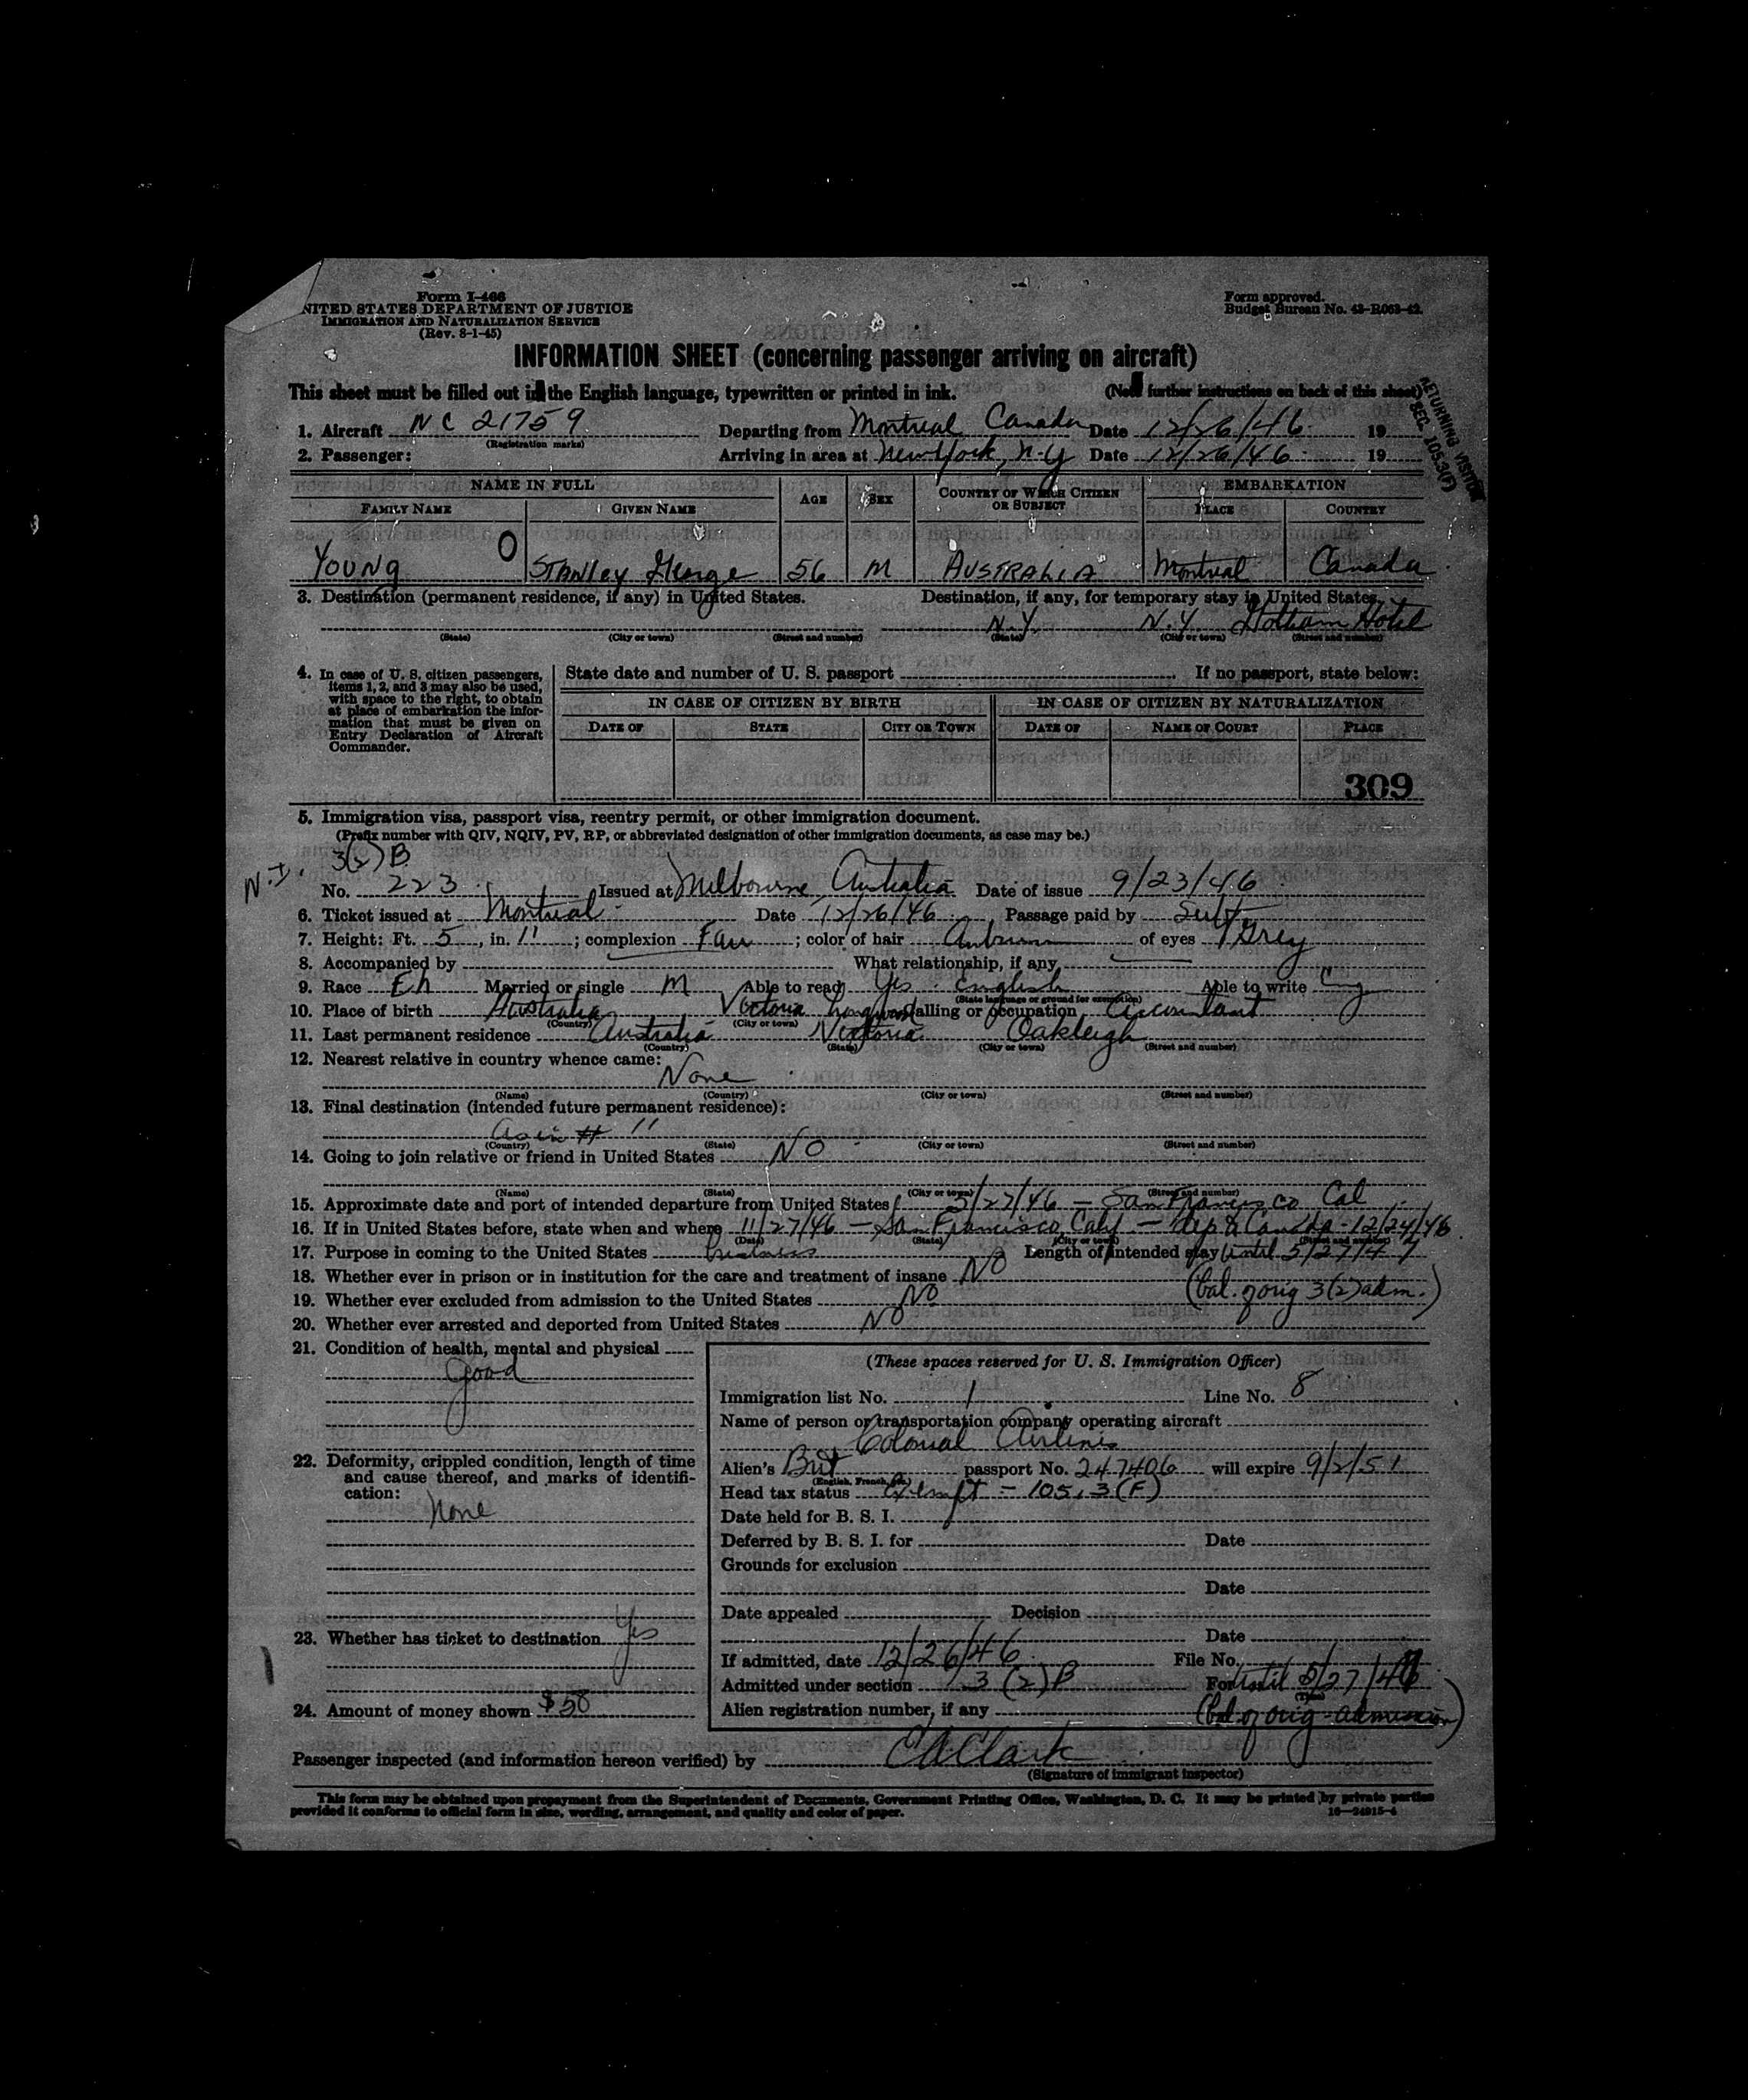 Form I-466
UNITED STATES DEPARTMENT OF JUSTICE
IMMIGRATION AND NATURALIZATION SERVICE
(Rev. 8-1-45)
Form approved.
Budget Bureau No. 43-R063-42.
INFORMATION SHEET (concerning passenger arriving on aircraft)
This sheet must be filled out in the English language, typewritten or printed in ink. (Note further instructions on back of this sheet)
RETURNING VISITOR
SEC. 105.3(F)
1. Aircraft NC 21759 Departing from Montreal Canada Date 12/26/46 19
(Registration marks)
2. Passenger: Arriving in area at New York, N.Y Date 12/26/46 19
NAME IN FULL AGE SEX COUNTRY OF WHICH CITIZEN OR SUBJECT EMBARKATION
FAMILY NAME GIVEN NAME PLACE COUNTRY
YOUNG O STANLEY George 56 M AUSTRALIA Montreal Canada
3. Destination (permanent residence, if any) in United States. Destination, if any, for temporary stay in United States.
N.Y. N.Y. Gotham Hotel
(State) (City or town) (Street and number) (State) (City or town) (Street and number)
4. In case of U. S. citizen passengers, items 1, 2, and 3 may also be used, with space to the right, to obtain at place of embarkation the information that must be given on Entry Declaration of Aircraft Commander.
State date and number of U. S. passport If no passport, state below:
IN CASE OF CITIZEN BY BIRTH IN CASE OF CITIZEN BY NATURALIZATION
DATE OF STATE CITY OR TOWN DATE OF NAME OF COURT PLACE
309
5. Immigration visa, passport visa, reentry permit, or other immigration document.
(Prefix number with QIV, NQIV, PV, RP, or abbreviated designation of other immigration documents, as case may be.)
N.I. 3(2)B
No. 223 Issued at Melbourne, Australia Date of issue 9/23/46
6. Ticket issued at Montreal Date 12/26/46 Passage paid by Self
7. Height: Ft. 5, in. 11; complexion Fair; color of hair Auburn of eyes Grey
8. Accompanied by What relationship, if any
9. Race Eh Married or single M Able to read Yes English Able to write Eng
(State language or ground for exemption)
10. Place of birth Australia Victoria Calling or occupation Accountant
(Country) (City or town)
11. Last permanent residence Australia Victoria Oakleigh
(Country) (State) (City or town) (Street and number)
12. Nearest relative in country whence came:
None
(Name) (Country) (City or town) (Street and number)
13. Final destination (intended future permanent residence):
as in # 11
(Country) (State) (City or town) (Street and number)
14. Going to join relative or friend in United States NO
(Name) (State) (City or town) (Street and number)
15. Approximate date and port of intended departure from United States 5/27/46 — San Francisco Cal
16. If in United States before, state when and where 11/27/46 — San Francisco, Calif — dep to Canada - 12/24/46
(Date) (State) (City or town) (Street and number)
17. Purpose in coming to the United States business Length of intended stay Until 5/27/47
18. Whether ever in prison or in institution for the care and treatment of insane NO
(bal. of orig 3(2) adm.)
19. Whether ever excluded from admission to the United States NO
20. Whether ever arrested and deported from United States NO
21. Condition of health, mental and physical
Good
22. Deformity, crippled condition, length of time and cause thereof, and marks of identification:
None
23. Whether has ticket to destination Yes
24. Amount of money shown $50
(These spaces reserved for U. S. Immigration Officer)
Immigration list No. 1 Line No. 8
Name of person or transportation company operating aircraft
Colonial Airlines
Alien's Brit passport No. 247406 will expire 9/2/51
(English, French, etc.)
Head tax status Exempt - 105.3(F)
Date held for B. S. I.
Deferred by B. S. I. for Date
Grounds for exclusion
Date
Date appealed Decision
Date
If admitted, date 12/26/46 File No.
Admitted under section 3(2)B For Until 5/27/47
(Time)
Alien registration number, if any (bal. of orig. admission)
Passenger inspected (and information hereon verified) by CA Clark
(Signature of immigrant inspector)
This form may be obtained upon prepayment from the Superintendent of Documents, Government Printing Office, Washington, D. C. It may be printed by private parties
provided it conforms to official form in size, wording, arrangement, and quality and color of paper. 16—24915-4